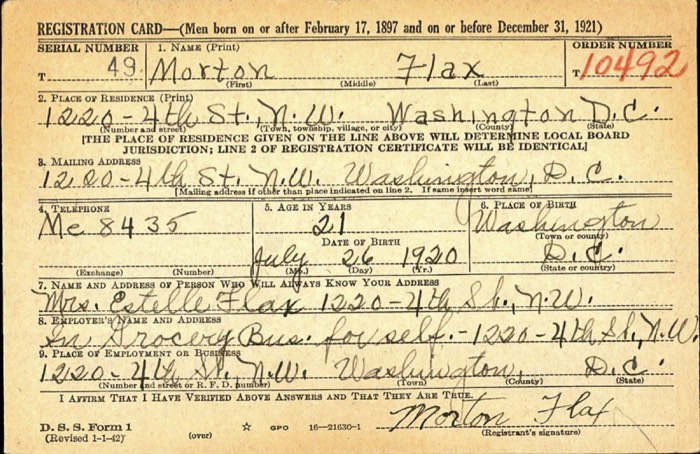 REGISTRATION CARD—(Men born on or after February 17, 1897 and on or before December 31, 1921)
SERIAL NUMBER 1. NAME (Print) ORDER NUMBER
T 49 Morton Flax T 10492
(First) (Middle) (Last)
2. PLACE OF RESIDENCE (Print)
1220-4th St., N.W. Washington D.C.
(Number and street) (Town, township, village, or city) (County) (State)
[THE PLACE OF RESIDENCE GIVEN ON THE LINE ABOVE WILL DETERMINE LOCAL BOARD
JURISDICTION; LINE 2 OF REGISTRATION CERTIFICATE WILL BE IDENTICAL]
3. MAILING ADDRESS
1220-4th St. N.W. Washington, D.C.
[Mailing address if other than place indicated on line 2. If same insert word same]
4. TELEPHONE 5. AGE IN YEARS 6. PLACE OF BIRTH
Me 8435 21 Washington
(Town or county)
DATE OF BIRTH
July 26 1920 D.C.
(Exchange) (Number) (Mo.) (Day) (Yr.) (State or country)
7. NAME AND ADDRESS OF PERSON WHO WILL ALWAYS KNOW YOUR ADDRESS
Mrs. Estelle Flax 1220-4th St., N.W.
8. EMPLOYER'S NAME AND ADDRESS
In Grocery Bus. for self.-1220-4th St., N.W.
9. PLACE OF EMPLOYMENT OR BUSINESS
1220-4th St. N.W. Washington, D.C.
(Number and street or R. F. D. number) (Town) (County) (State)
I AFFIRM THAT I HAVE VERIFIED ABOVE ANSWERS AND THAT THEY ARE TRUE.
Morton Flax
D. S. S. Form 1
(Revised 1-1-42) (over) ☆ GPO 16—21630-1 (Registrant's signature)